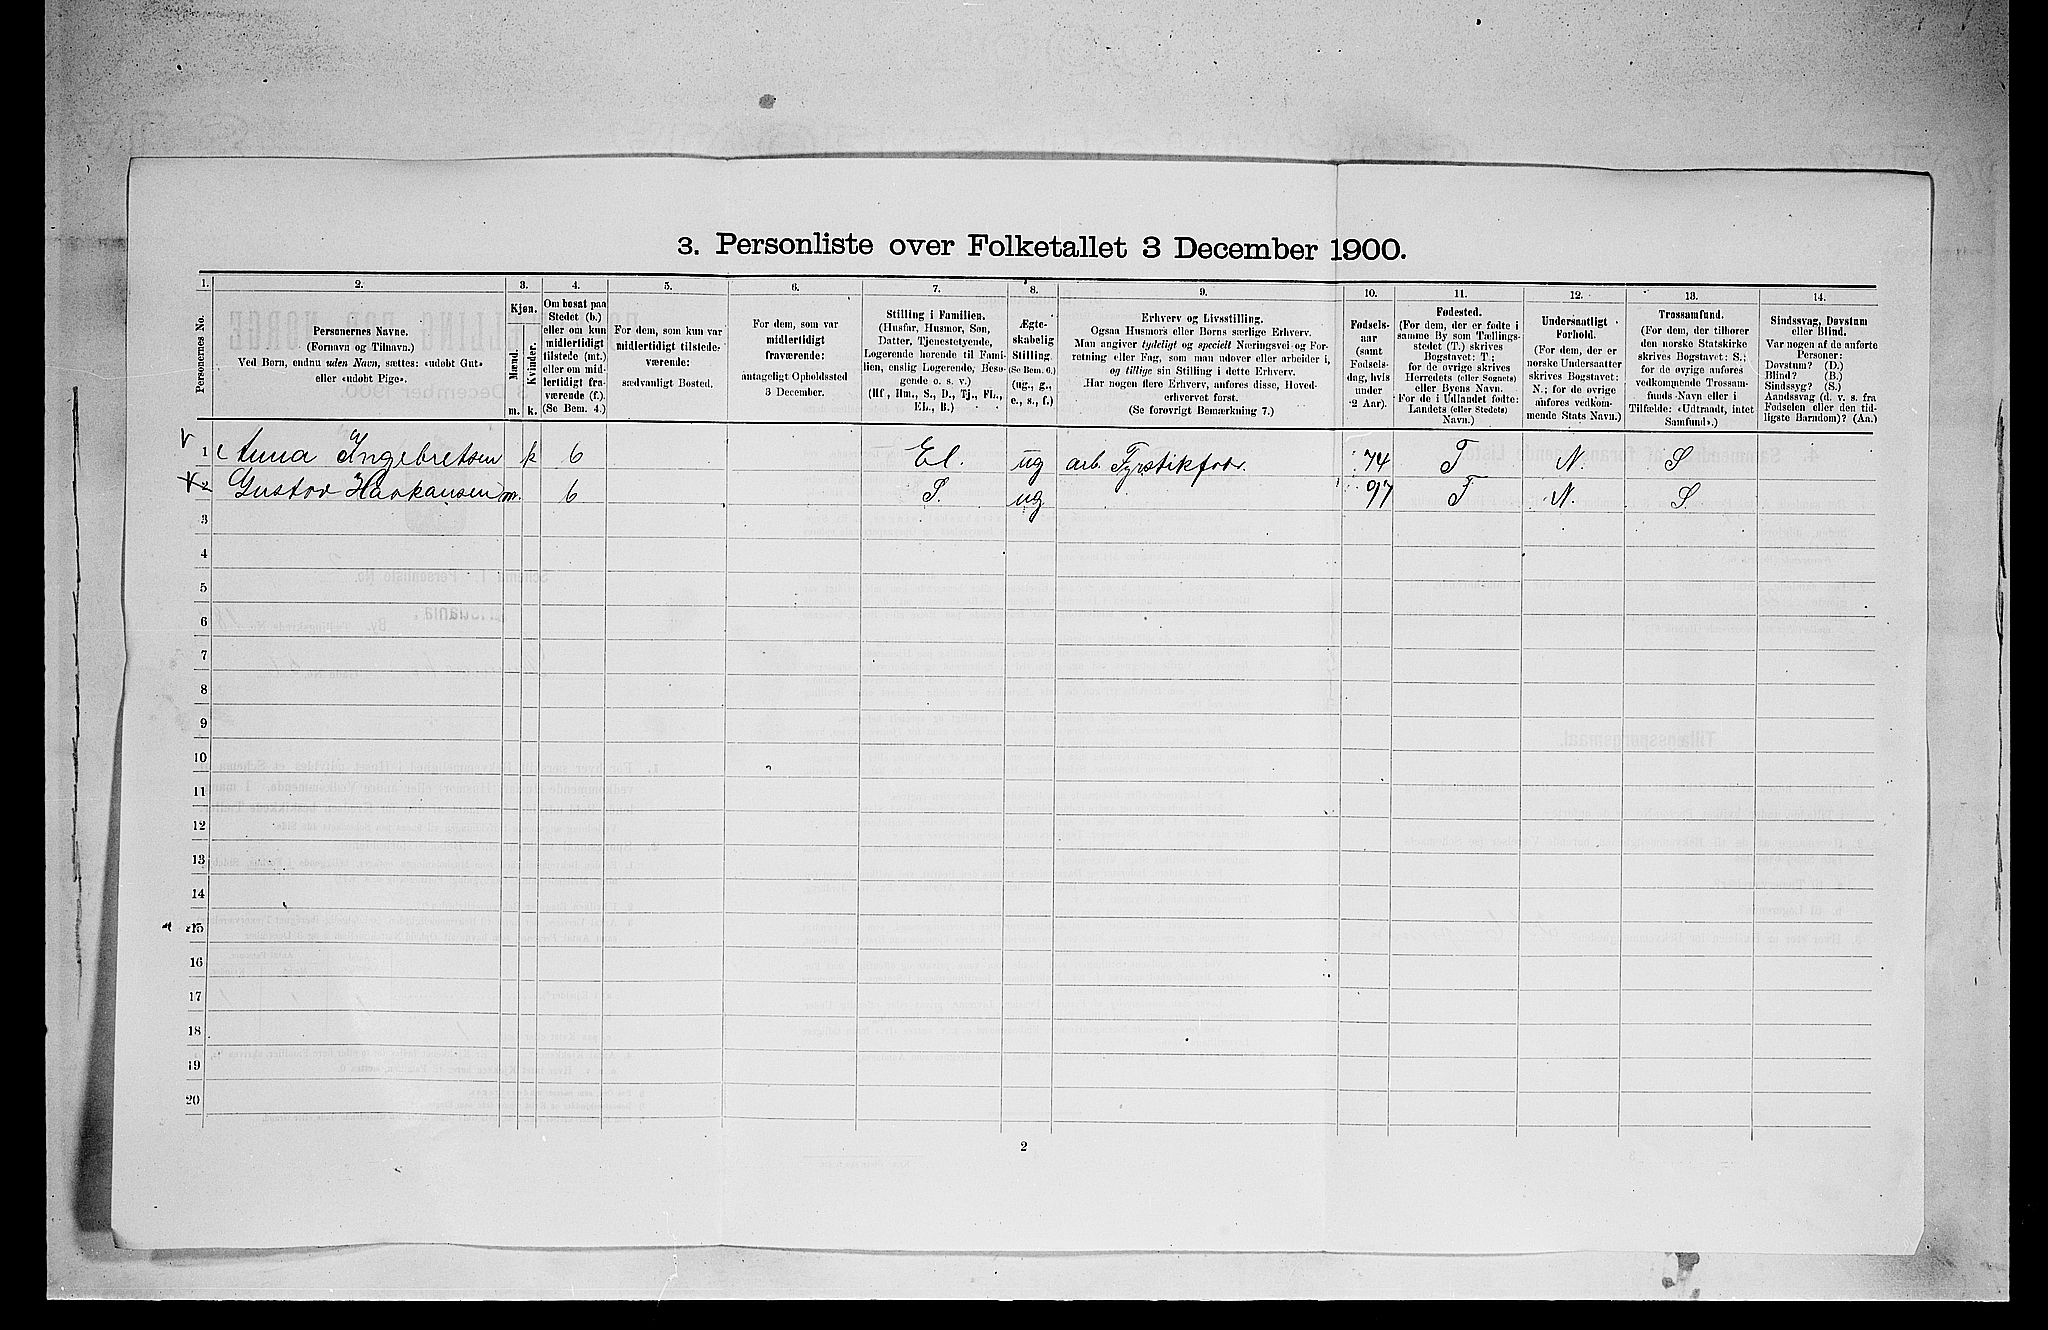 3. Personliste over Folketallet 3 December 1900.
1. 2. 3. 4. 5. 6. 7. 8. 9. 10. 11. 12. 13. 14.
Personernes No.
Personernes Navne.
(Fornavn og Tilnavn.)
Ved Børn, endnu uden Navn, sættes: «udøbt Gut»
eller «udøbt Pige».
Kjøn.
Mænd.
Kvinder.
m. k.
Om bosat paa
Stedet (b.)
eller om kun
midlertidigt
tilstede (mt.)
eller om mid-
lertidigt fra-
værende (f.).
(Se Bem. 4.)
For dem, som kun var
midlertidigt tilstede-
værende:
sædvanligt Bosted.
For dem, som var
midlertidigt
fraværende:
antageligt Opholdssted
3 December.
Stilling i Familien.
(Husfar, Husmor, Søn,
Datter, Tjenestetyende,
Logerende hørende til Fami-
lien, enslig Logerende, Besø-
gende o. s. v.)
(Hf, Hm., S., D., Tj., FL.,
EL., B.)
Ægte-
skabelig
Stilling.
(Se Bem. 6.)
(ug., g.,
e., s., f.)
Erhverv og Livsstilling.
Ogsaa Husmors eller Børns særlige Erhverv.
Man angiver tydeligt og specielt Næringsvei og For-
retning eller Fag, som man udøver eller arbeider i,
og tillige sin Stilling i dette Erhverv.
Har nogen flere Erhverv, anføres disse, Hoved-
erhvervet først.
(Se forøvrigt Bemærkning 7.)
Fødsels-
aar
(samt
Fødsels-
dag, hvis
under
2 Aar).
Fødested.
(For dem, der er fødte i
samme By som Tællings-
stedet (T.) skrives
Bogstavet: T;
for de øvrige skrives
Herredets (eller Sognets)
eller Byens Navn.
For de i Udlandet fødte:
Landets (eller Stedets)
Navn.)
Undersaatligt
Forhold.
(For dem, der er
norske Undersaatter
skrives Bogstavet:
N.; for de øvrige
anføres vedkom-
mende Stats Navn.)
Trossamfund.
(For dem, der tilhører
den norske Statskirke
skrives Bogstavet: S.;
for de øvrige anføres
vedkommende Trossam-
funds Navn eller i
Tilfælde: «Udtraadt, intet
Samfund».)
Sindssvag, Døvstum
eller Blind.
Var nogen af de anførte
Personer:
Døvstum? (D.)
Blind? (B.)
Sindssyg? (S.)
Aandssvag (d. v. s. fra
Fødselen eller den tid-
ligste Barndom)? (Aa.)
1 Anna Ingebretsen k 6 El. ug arb. Fyrstikfabr. 74 T N. S
2 Gustav Haakansen m. 6 S. ug 97 T N. S
3
4
5
6
7
8
9
10
11
12
13
14
15
16
17
18
19
20
2